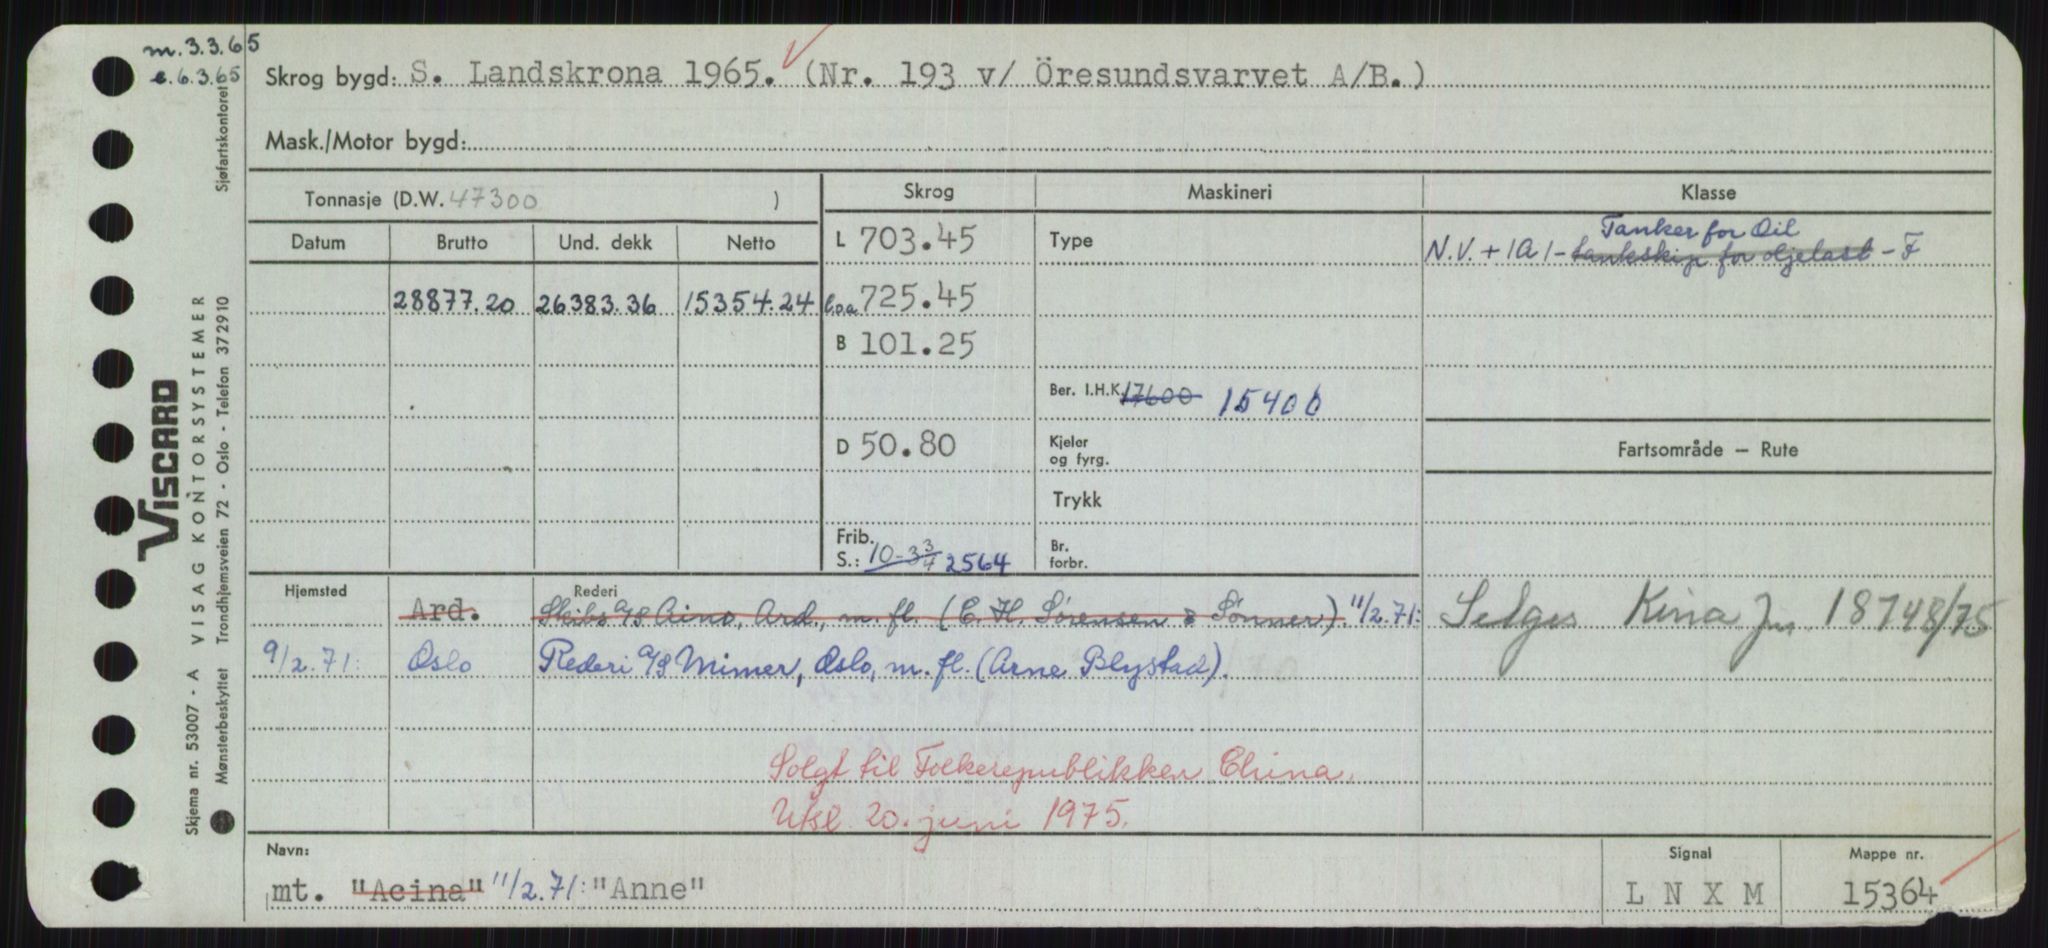 m. 3.3.65
e. 6.3.65
Skrog bygd: S. Landskrona 1965. (Nr. 193 v/ Öresundsvarvet A/B.)
Mask./Motor bygd:
Tonnasje (D.W. 47300 )
Skrog
Maskineri
Klasse
Datum Brutto Und. dekk Netto
L 703.45
Type
Tanker for Oil
N.V. + 1A1 - tankskip for oljelast - F
28877.20 26383.36 15354.24
l.o.a 725.45
B 101.25
Ber. I.H.K. 17600 15400
D 50.80
Kjeler
og fyrg.
Fartsområde — Rute
Trykk
Frib.
S.: 10-3 3/4 2564
Br.
forbr.
Hjemsted
Rederi
Ard. Skibs A/S Aino, Ard., m. fl. (E. H. Sørensen & Sønner). 11/2.71:
Selges Kina Jn. 18748/75
9/2.71: Oslo Rederi A/S Mimer, Oslo, m. fl. (Arne Blystad).
Solgt til Folkerepublikken China.
Utsl. 20. juni 1975.
Navn:
mt. "Acina" 11/2.71: "Anne"
Signal
L N X M
Mappe nr.
15364
VISCARD
VISAG KONTORSYSTEMER
Skjema nr. 53007 - A
Mønsterbeskyttet Trondhjemsveien 72 - Oslo - Telefon 372910
Sjøfartskontoret